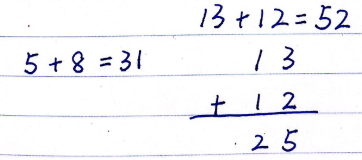 13+12=52
5+8=31
13
+12
25